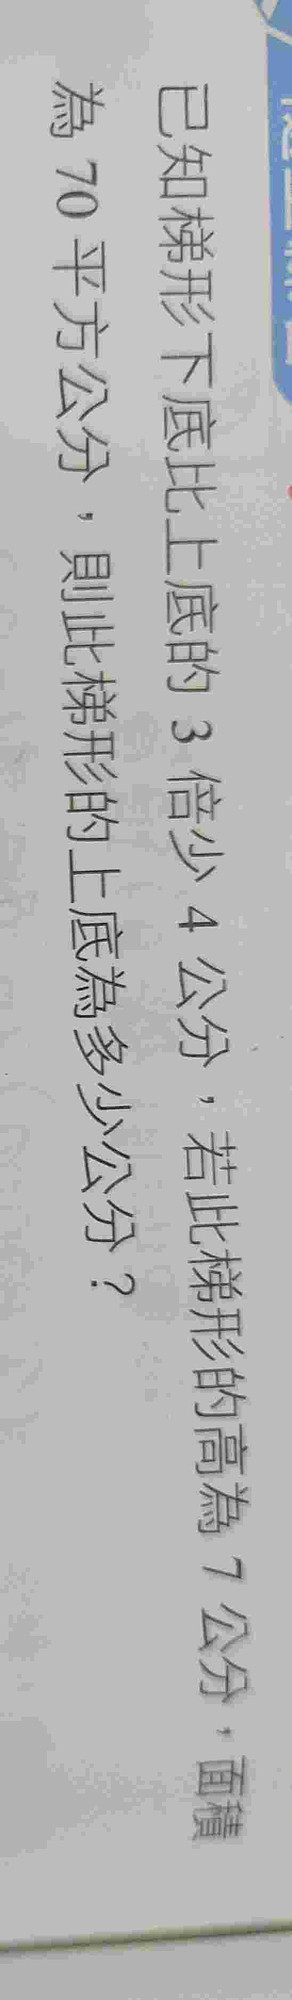 已知梯形下底比上底的 3 倍少 4 公分，若此梯形的高為 7 公分，面積
為 70 平方公分，則此梯形的上底為多少公分？